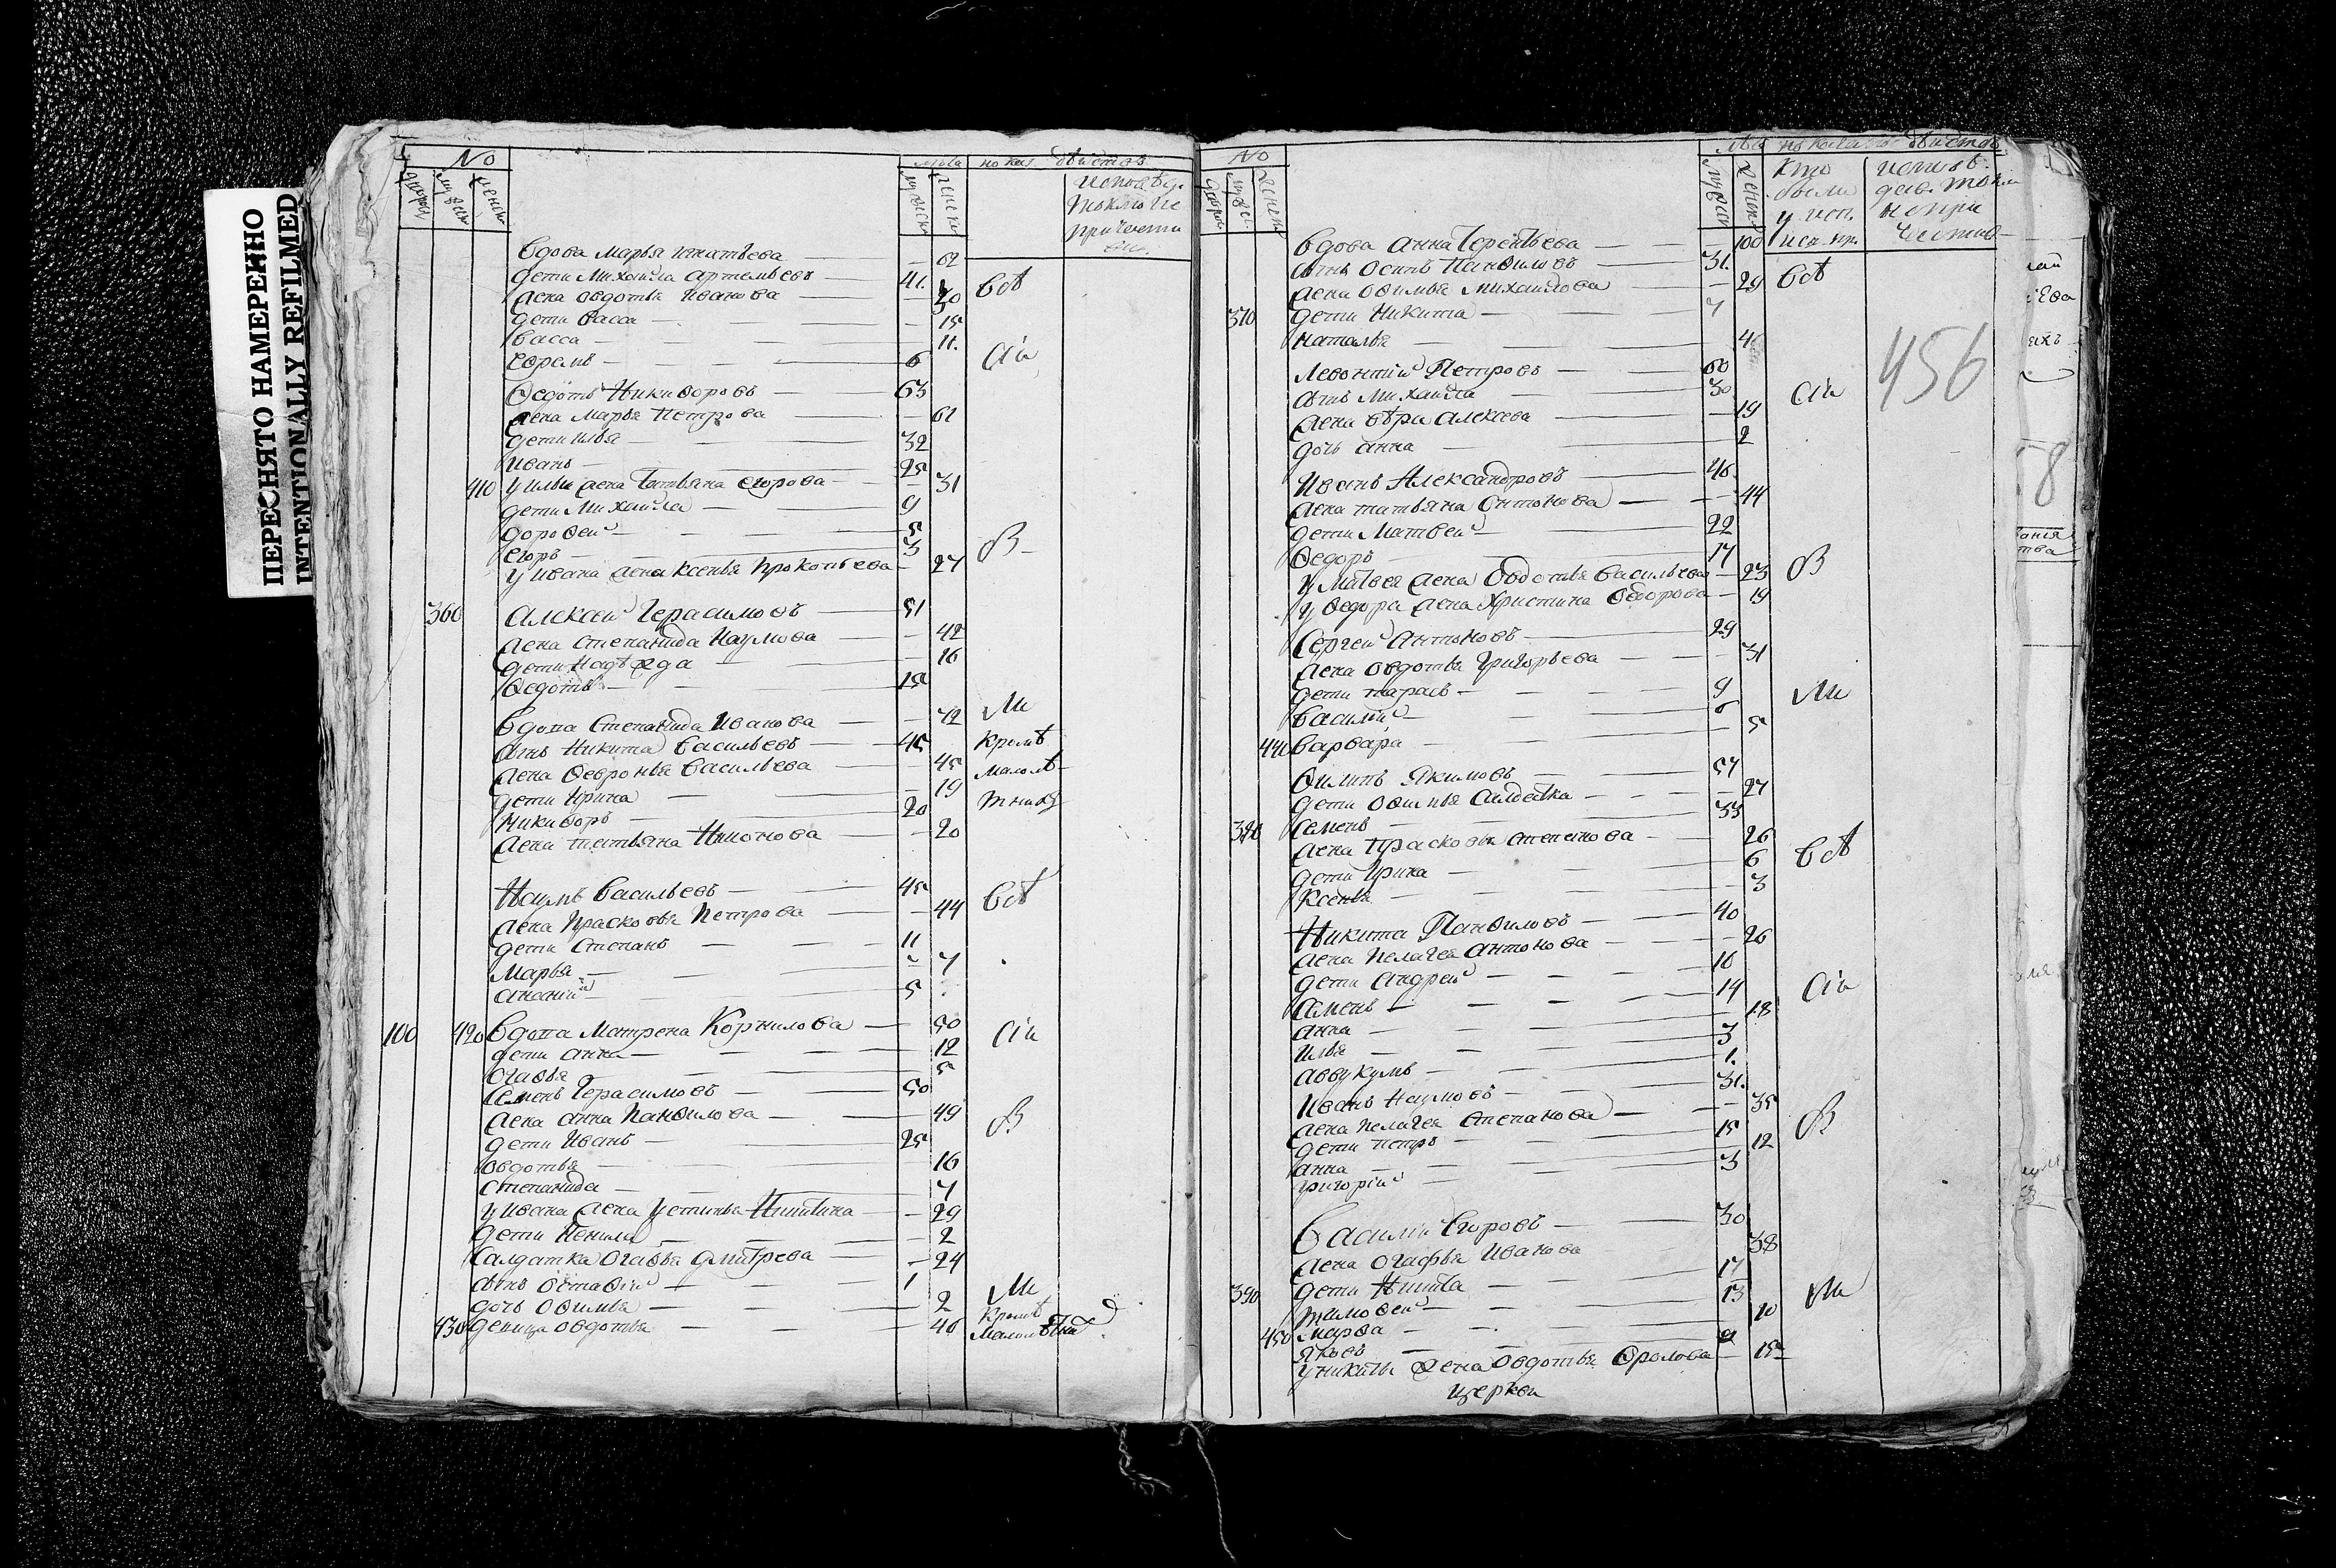 ПЕРЕСНЯТО НАМЕРЕННО
INTENTIONALLY REFILMED
No
лѣта
мужеск
женск
исповѣд.
токмо не
Вдова Марья Игнатьева — 62
дети Михайла Артемьевъ — 41.
жена Овдотья Иванова —
дети Васса — 15
Васса — 11.
Ефремъ — 6
Федотъ Никифоровъ — 63
жена Марья Петрова — 61
дети Илья — 32
Иванъ — 25
410 у Ильи жена Татьяна Егорова — 31
дети Михайла — 9
Дорофей — 5
Егоръ — 3
у Ивана жена Ксенья Прокопьева — 27
360 Алексей Герасимовъ — 51
жена Степанида Наумова — 42
дети Надѣжда — 16
Федотъ — 15
Вдова Степанида Иванова — 72
сынъ Никита Васильевъ — 45
жена Февронья Васильева — 45
дети Ирина — 19
Никифоръ — 20
жена Татьяна — 20
Всѣ
сiи
В
Ли
Кромѣ
малолѣ
тныхъ
Наумъ Васильевъ — 45
жена Прасковья Петрова — 44
дети Степанъ — 11
Марья — 7
Ананiй — 5
100 420 Вдова Матрена Корнилова — 50
дети Анна — 12
Огафья — 5
Семенъ Герасимовъ — 50
жена Анна Панфилова — 49
дети Иванъ — 25
Овдотья — 16
Степанида — 7
у Ивана жена Устинья Никитина — 29
дети Ненила — 2
Салдатка Огафья Дмитрева — 24
сынъ Остафiй — 1
дочь Офимья — 2
430 девица Овдотья — 46
Всѣ
сiи
В
Ли
Кромѣ
No
лѣта
Кто
были
у исп.
исповѣ
дав. токм
не при
456
Вдова Анна Терентьева — 100
сынъ Осипъ Панфиловъ — 31.
жена Офимья Михайлова — 29
370 дети Никита — 7
Наталья — 4
Левонтiй Петровъ — 60
сынъ Михайла — 30
жена Вѣра Алексева — 19
дочь Анна — 2
Иванъ Александровъ — 46
жена Татьяна Онтонова — 44
дети Матвей — 22
Федоръ — 17
у Матвея жена Овдотья Васильева — 23
у Федора жена Христина Федорова — 19
Сергей Антоновъ — 29
жена Овдотья Григорьева — 31
дети Тарасъ — 9
Василiй — 6
440 Варвара — 5
Филипъ Якимовъ — 57
дети Офимья Салдатка — 27
380 Семенъ — 33
жена Прасковья Степанова — 26
дети Ирина — 6
Ксенья — 3
Никита Панфиловъ — 40
жена Пелагея Антонова — 26
дети Андрей — 16
Семенъ — 14
Анна — 18
Илья — 3
Аввукумъ — 1.
Иванъ Наумовъ — 31.
жена Пелагея Степанова — 35
дети Петръ — 15
Анна — 12
Григорiй — 3
Василiй Егоровъ — 30
жена Огафья Иванова — 38
390 дети Никита — 17
Тимофей — 13
450 Марфа — 10
Яковъ — 9
у Никиты жена Овдотья Фролова — 15
Церкви
Всѣ
сiи
В
Ли
Всѣ
сiи
В
Ли